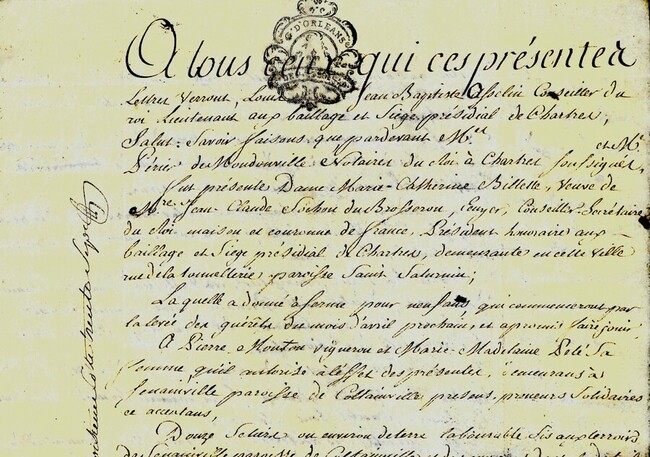 G. D'ORLEANS
A tous ceux qui ces présentes
Lettres verront, Louis Jean Baptiste Asselin Conseiller du
roi Lieutenant aux bailliage et Siège présidial de Chartres,
Salut. Savoir faisons que pardevant Me. et Me.
de Moudonville Notaires du Roi à Chartres soussignés,
fut présente Dame Marie-Catherine Billette, veuve de
Mre. Jean-Claude Souchon du Brosseron, Ecuyer, Conseiller-Secrétaire
du Roi maison et couronne de france, Président honoraire aux
bailliage et Siège présidial de Chartres, demeurante en cette ville
rue de la tonnellerie paroisse Saint Saturnin;
Laquelle a donné à ferme pour neuf ans, qui commenceront par
la levée des guérêts du mois d'avril prochain, et a promis faire jouir
A Pierre Mouton vigneron et Marie-Madelaine Pelé Sa
femme qu'il autorise à l'effet des présentes, demeurans à
Senainville paroisse de Coltainville présens, preneurs Solidaires
ce acceptans,
Douze Setiers ou environ de terre labourable Sis aux terroirs
de Senainville paroisse de Coltainville